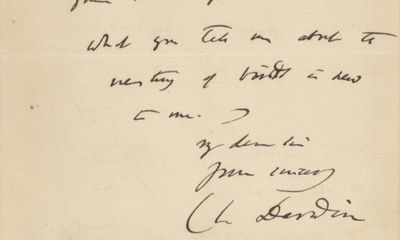 what you tell me about the
nesting of birds is new
to me.
My dear Sir
yours sincerely
Ch. Darwin